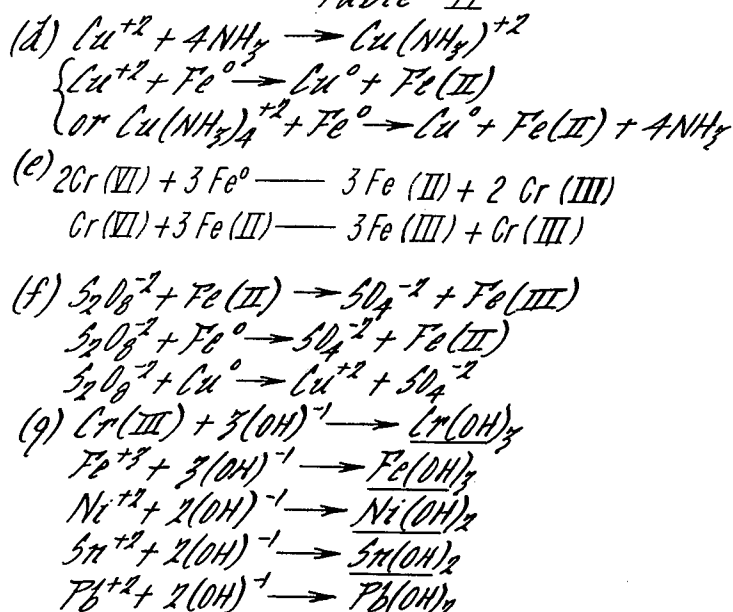 Table II
(d) Cu⁺² + 4NH₃ → Cu(NH₃)⁺²
{Cu⁺² + Fe⁰ → Cu⁰ + Fe(II)
or Cu(NH₃)₄⁺² + Fe⁰ → Cu⁰ + Fe(II) + 4NH₃
(e) 2Cr(VI) + 3 Fe⁰ —— 3 Fe (II) + 2 Cr (III)
Cr(VI) + 3 Fe(II) —— 3 Fe(III) + Cr(III)
(f) S₂O₈⁻² + Fe(II) → SO₄⁻² + Fe(III)
S₂O₈⁻² + Fe⁰ → SO₄⁻² + Fe(II)
S₂O₈⁻² + Cu⁰ → Cu⁺² + SO₄⁻²
(g) Cr(III) + 3(OH)⁻¹ → Cr(OH)₃
Fe⁺³ + 3(OH)⁻¹ → Fe(OH)₃
Ni⁺² + 2(OH)⁻¹ → Ni(OH)₂
Sn⁺² + 2(OH)⁻¹ → Sn(OH)₂
Pb⁺² + 2(OH)⁻¹ → Pb(OH)₂